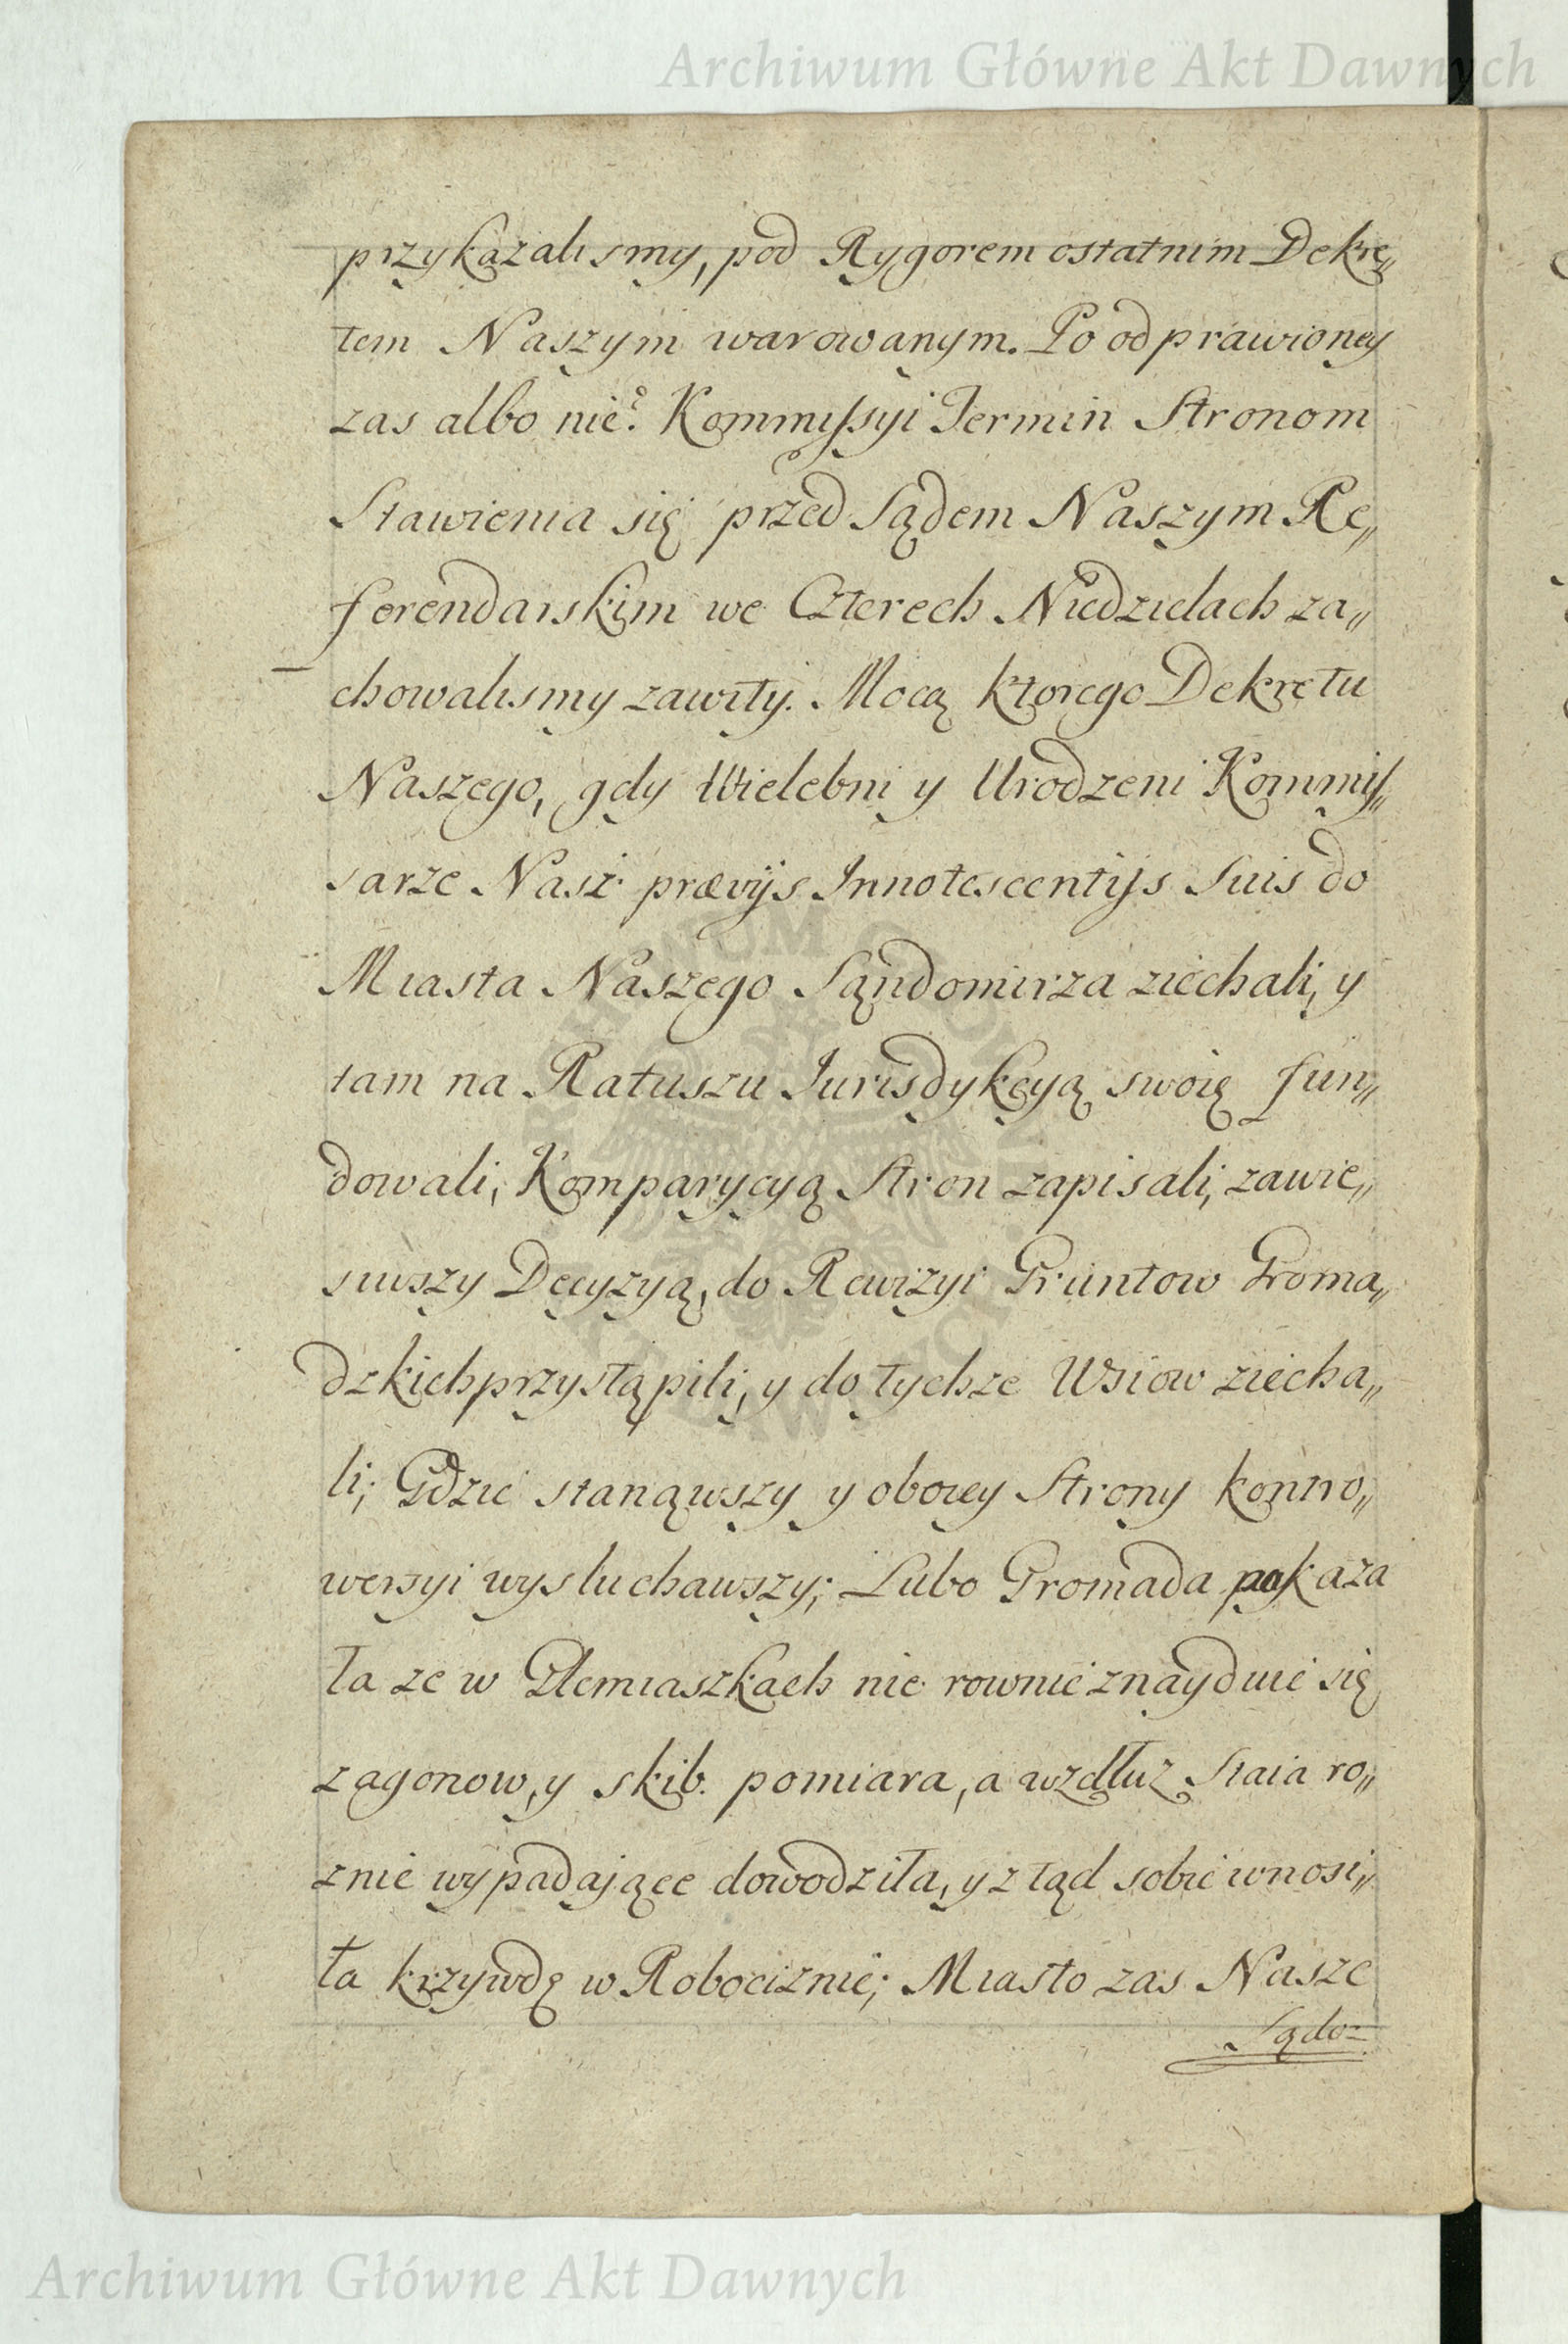 Archiwum Główne Akt Dawnych
przykazalismy, pod Rygorem ostatnim Dekre„
tem Naszym warowanym. Po odprawioney
zas albo nie? Kommissyi Termin Stronom
Stawienia się przed Sądem Naszym Re„
ferendarskim we Czterech Niedzielach za„
chowalismy zawity. Mocą ktorego Dekretu
Naszego, gdy Wielebni y Urodzeni Kommis„
sarze Nasi prævijs Innotescentijs Suis do
Miasta Naszego Sąndomirza ziechali, y
tam na Ratuszu Iurisdykcyą swoię fun„
dowali, Komparycyą Stron zapisali, zawie„
siwszy Decyzyą, do Rewizyi Gruntow Groma„
dzkich przystąpili, y do tychze Wsiow ziecha„
li; Gdzie stanąwszy y oboiey Strony kontro„
wersyi wysluchawszy; Lubo Gromada pokaza
ła ze w Dlemiaszkach nie rownie znayduie się
zagonow, y skib. pomiara, a wzdłuz Staia ro„
znie wypadające dowodziła, y ztąd sobie wnosi„
ła krzywdę w Robociznie; Miasto zas Nasze
Sądo=
Archiwum Główne Akt Dawnych